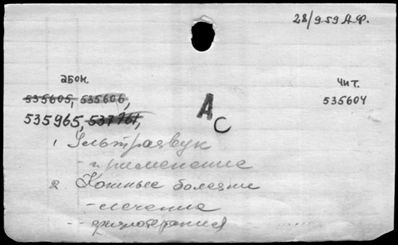 28/9 59 А.Ф.
абон.
чит.
535605, 535606,
535604
А
С
535965, 537761,
1 Ультразвук
- применение
2 Кожные болезни
- лечение
-- физиотерапия